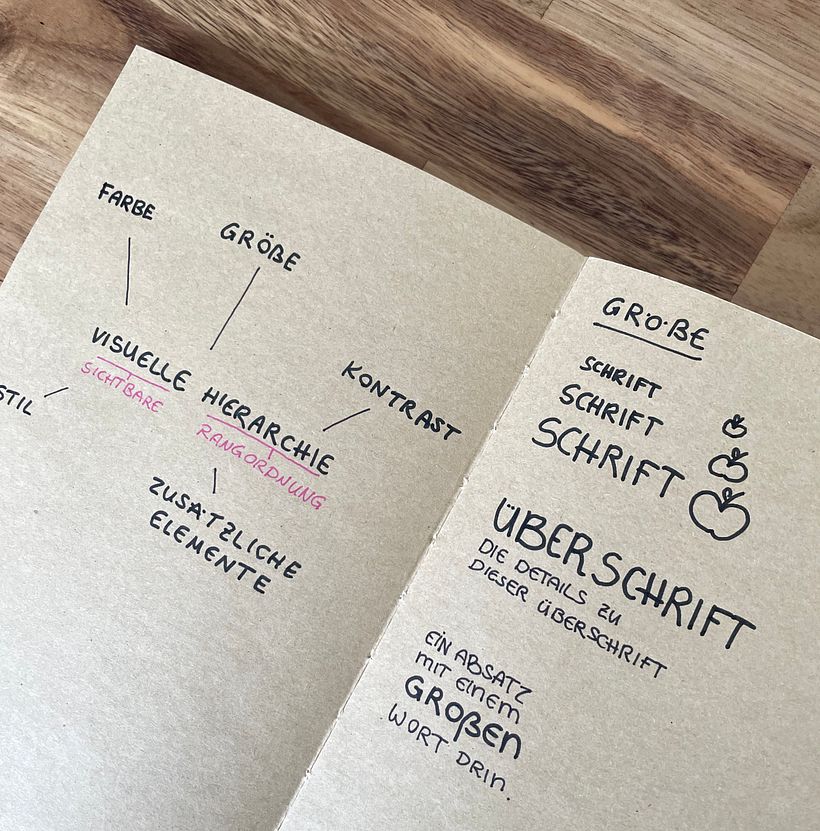 FARBE
GRÖẞE
VISUELLE HIERARCHIE
SICHTBARE
RANGORDNUNG
KONTRAST
STIL
ZUSÄTZLICHE
ELEMENTE
GRÖẞE
SCHRIFT
SCHRIFT
SCHRIFT
ÜBERSCHRIFT
DIE DETAILS ZU
DIESER ÜBERSCHRIFT
EIN ABSATZ
MIT EINEM
GROẞEN
WORT DRIN.